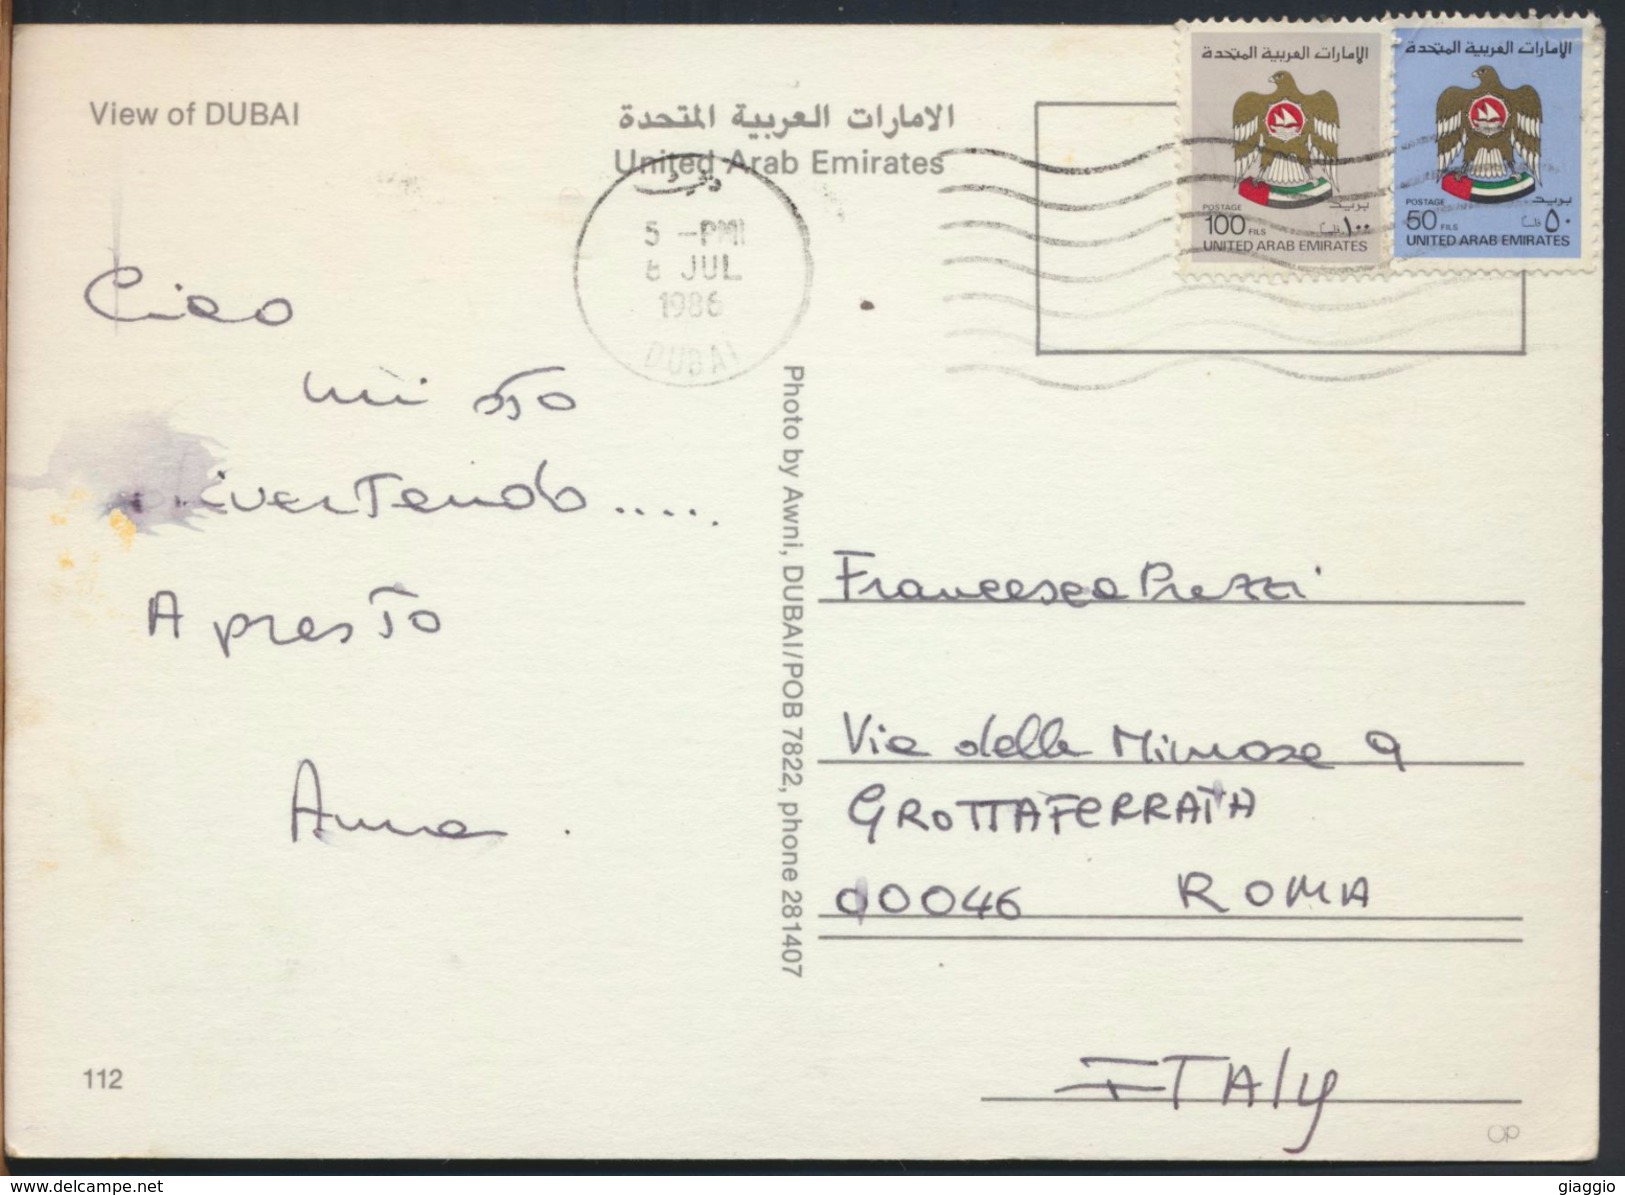 View of DUBAI
الامارات العربية المتحدة
United Arab Emirates
الإمارات العربية المتحدة
POSTAGE بريد
100 FILS ١٠٠ فلس
UNITED ARAB EMIRATES
الإمارات العربية المتحدة
POSTAGE بريد
50 FILS ٥٠ فلس
UNITED ARAB EMIRATES
5 -PM
8 JUL
1986
DUBAI
Ciao
mi sto
divertendo.....
A presto
Anna.
Photo by Awni, DUBAI/POB 7822, phone 281407
Francesca Prezzi
Via delle Mimose 9
GROTTAFERRATA
00046 ROMA
ITALY
112
www.delcampe.net
giaggio